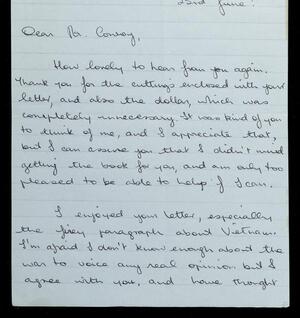 23rd June.
Dear Mr. Conroy,
How lovely to hear from you again.
Thank you for the cuttings enclosed with your
letter, and also the dollar, which was
completely unnecessary. It was kind of you
to think of me, and I appreciate that,
but I can assure you that I didn't mind
getting the book for you, and am only too
pleased to be able to help if I can.
I enjoyed your letter, especially
the fiery paragraph about Vietnam.
I'm afraid I don't know enough about the
war to voice any real opinion but I
agree with you, and have thought